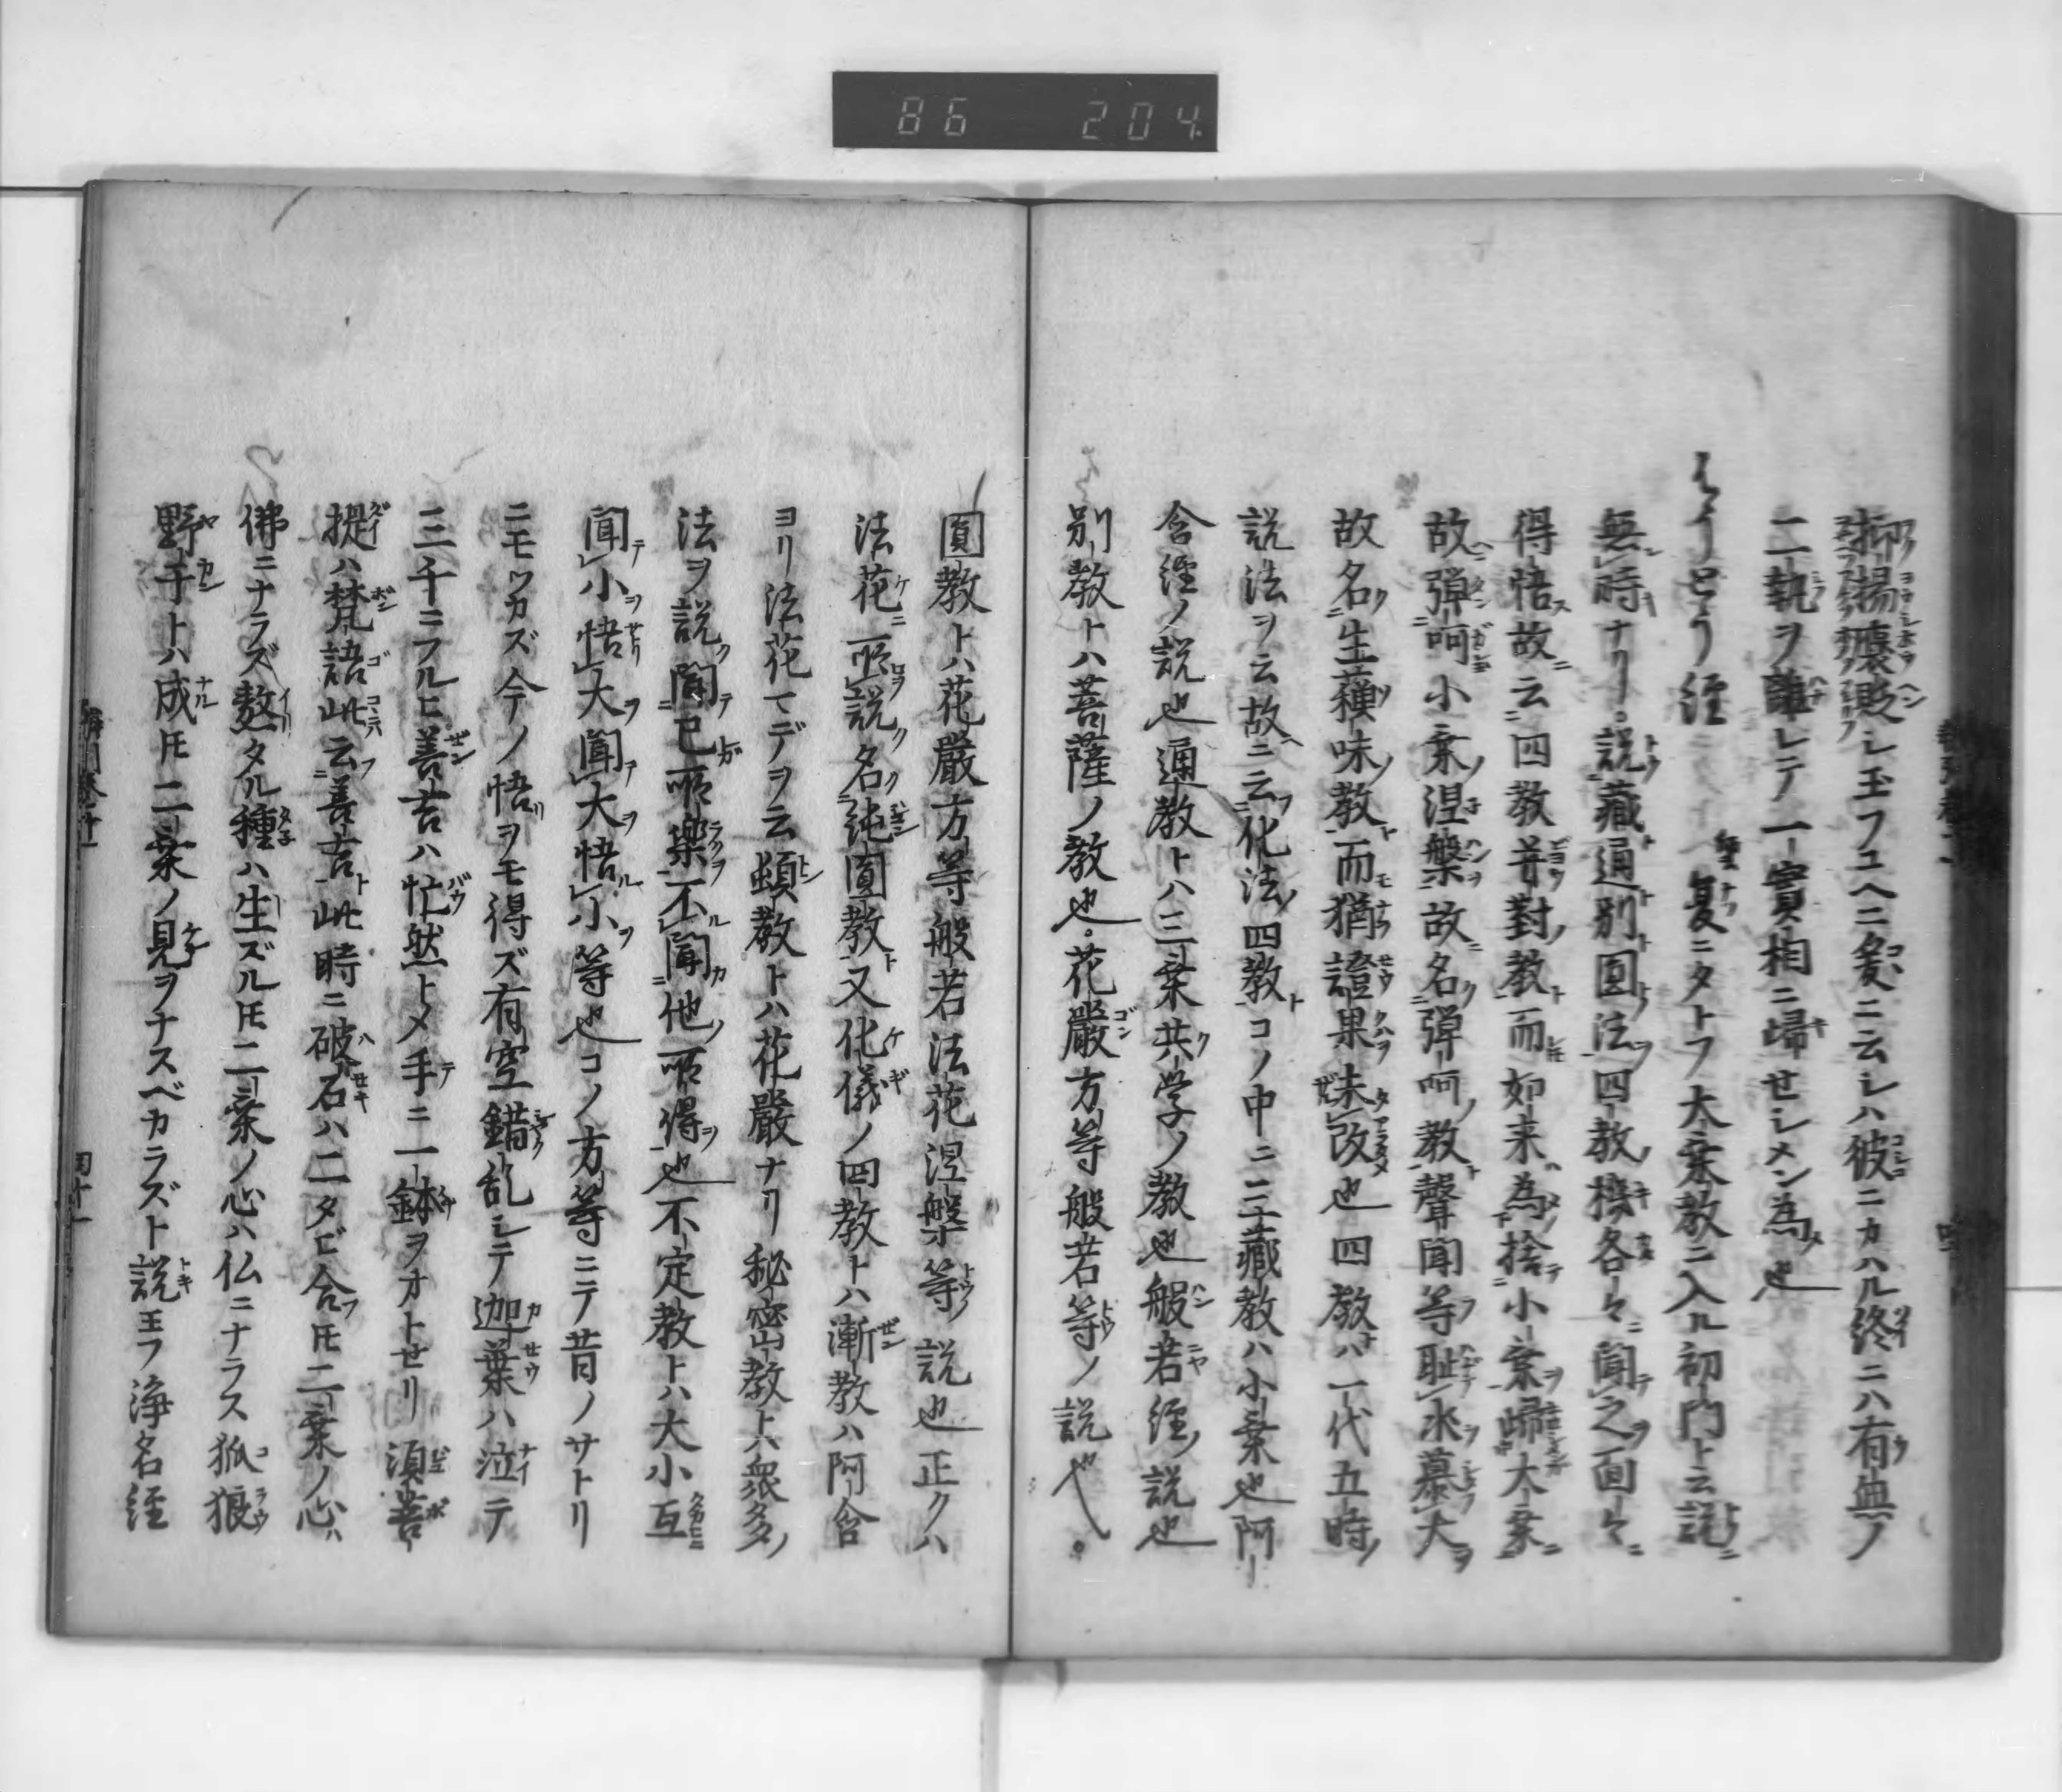 86 204
抑揚襃貶シ玉フユヘニ爰ニ云シハ彼ニカハル終ニハ有無ノ
二執ヲ離レテ一實相ニ歸セシメン為也
はうどう經 夏ニタトフ大乗教ニ入ル初門ト云説
無時ナリ。説藏通別圓法四教機各々聞之面々
得悟故云四教並對教而如来為捨小乗歸大乗
故彈呵小乗涅槃故名彈呵教聲聞等耻小慕大
故名生蘓味教而猶證果未改也四教ハ一代五時
説法ヲ云故ニ云化法四教コノ中ニ三藏教ハ小乗也阿
含經ノ説也通教トハ三乗共学ノ教也般若經ノ説也
別教トハ菩薩ノ教也。花嚴方等般若等ノ説也。
圓教トハ花嚴方等般若法花涅槃等説也正クハ
法花所説名純圓教又化儀ノ四教トハ漸教ハ阿含
ヨリ法花マデヲ云頓教トハ花嚴ナリ秘密教トハ衆多
法ヲ説聞已所樂不聞他所得也不定教トハ大小互
聞小悟大聞大悟小等也コノ方等ニテ昔ノサトリ
ニモツカズ今ノ悟ヲモ得ズ有空錯乱シテ迦葉ハ泣テ
三千ニフルヒ善吉ハ忙然トメ手ニ一鉢ヲオトセリ須菩
提ハ梵語此云善吉此時ニ破石ハ二タビ合フ𪜈二乗ノ心ハ
佛ニナラズ𤎅タル種ハ生ズル𪜈二乗ノ心ハ仏ニナラス狐狼
野干トハ成𪜈二乗ノ見ヲナスベカラズト説玉フ浄名經